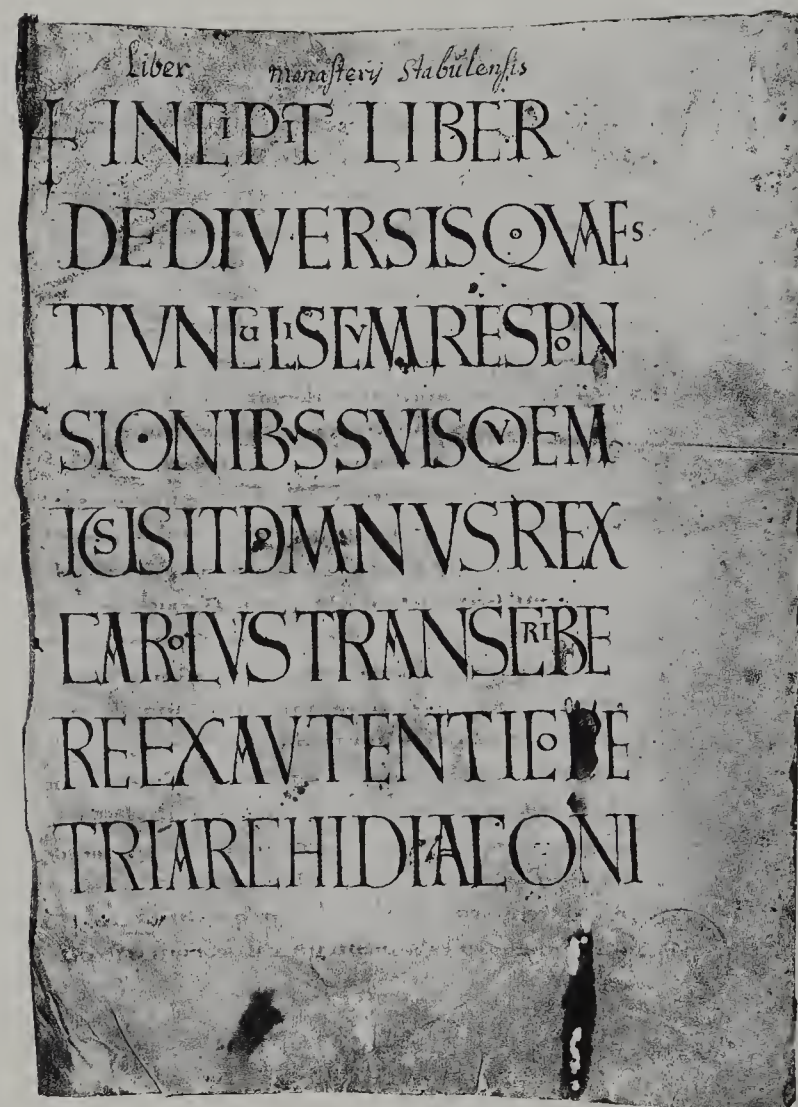 Liber monasterij Stabulensis
+ INCIPIT LIBER
DE DIVERSIS QVAES
TIVNCULIS CVM RESPON
SIONIBVS SVIS QVEM
IUSSIT DOMNVS REX
CAROLVS TRANSCRIBE
RE EX AVTENTICO PE
TRI ARCHIDIACONI